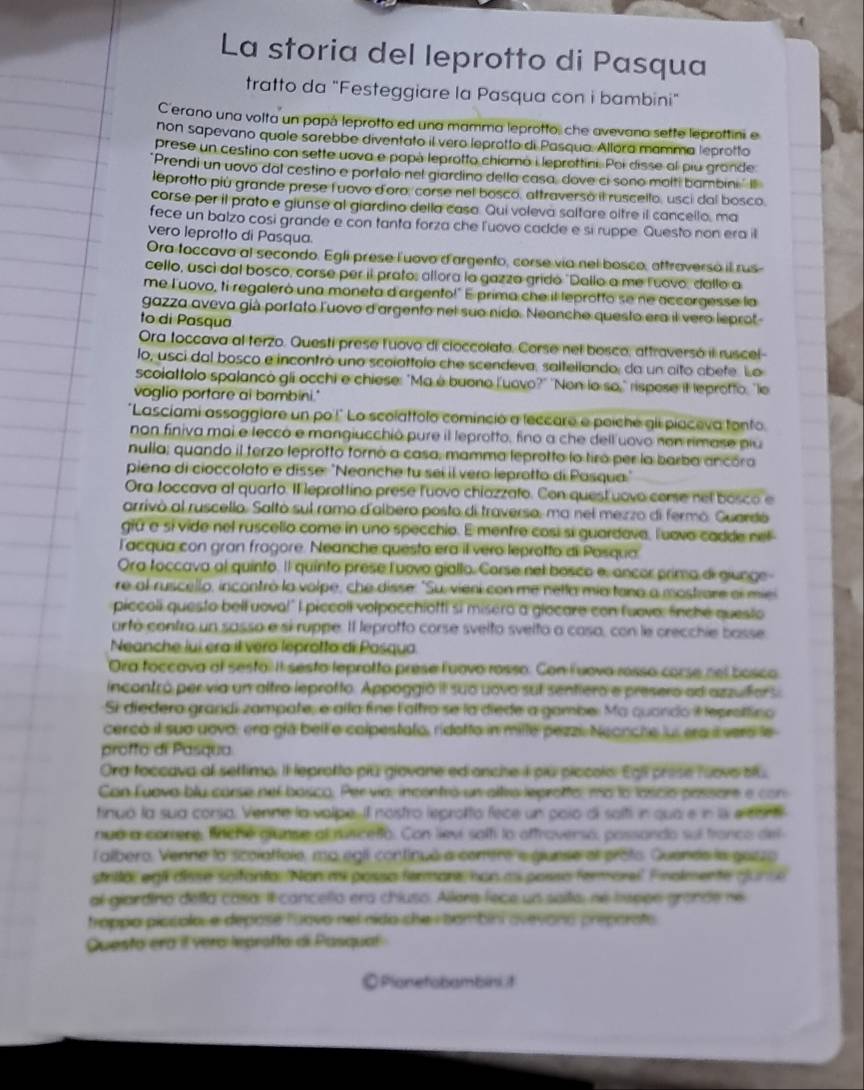 La storia del leprotto di Pasqua
tratto da "Festeggiare la Pasqua con i bambini"
C'erano una volta un papà leprotto ed una mamma leprotto, che avevano sette leprottini e
non sapevano quale sarebbe diventato il vero leprotto di Pasqua. Allora mamma leprotto
prese un cestino con sette uova e papà leprotto chiamò i leprottini. Poi disse al più grande:
"Prendi un uovo dal cestino e portalo nel giardino della casa, dove ci sono molti bambini." Il
leprotto più grande prese l'uovo d'oro, corse nel bosco, attraversò il ruscello, uscì dal bosco,
corse per il prato e giunse al giardino della casa. Qui voleva saltare oltre il cancello, ma
fece un balzo così grande e con tanta forza che l'uovo cadde e si ruppe. Questo non era il
vero leprotto di Pasqua.
Ora toccava al secondo. Egli prese l'uovo d'argento, corse via nel bosco, attraversò il rus-
cello, uscì dal bosco, corse per il prato; allora la gazza gridò "Dallo a me l'uovo, dallo a
me l'uovo, ti regalerò una moneta d'argento!" E prima che il leprotto se ne accorgesse la
gazza aveva già portato l'uovo d'argento nel suo nido. Neanche questo era il vero leprot-
to di Pasqua
Ora toccava al terzo. Questi prese l'uovo di cioccolata. Corse nel bosco, attraversò il ruscel-
lo, uscì dal bosco e incontrò uno scoiattolo che scendeva, saltellando, da un alto abete. Lo
scoiattolo spalancò gli occhi e chiese: "Ma è buono l'uovo?" "Non lo so," rispose il leprotto, "lo
voglio portare ai bambini."
"Lasciami assaggiare un po'!" Lo scoiattolo cominciò a leccare e poiché gli piaceva tanto,
non finiva mai e leccò e mangiucchiò pure il leprotto, fino a che dell'uovo non rimase più
nulla; quando il terzo leprotto tornò a casa, mamma leprotto lo tirò per la barba ancora
piena di cioccolato e disse: "Neanche tu sei il vero leprotto di Pasqua."
Ora toccava al quarto. Il leprottino prese l'uovo chiazzato. Con quest'uovo corse nel bosco e
arrivò al ruscello. Saltò sul ramo d'albero posto di traverso, ma nel mezzo di fermò. Guardò
giù e si vide nel ruscello come in uno specchio. E mentre così si guardava, l'uovo cadde nel-
l'acqua con gran fragore. Neanche questo era il vero leprotto di Pasqua.
Ora toccava al quinto. Il quinto prese l'uovo giallo. Corse nel bosco e, ancor prima di giunge-
re al ruscello, incontrò la volpe, che disse: "Su, vieni con me nella mia tana a mostrare ai miei
piccoli questo bell'uovo!" I piccoli volpacchiotti si misero a giocare con l'uovo, finché questo
urtò contro un sasso e si ruppe. Il leprotto corse svelto svelto a casa, con le orecchie basse.
Neanche lui era il vero leprotto di Pasqua.
Ora toccava al sesto. Il sesto leprotto prese l'uovo rosso. Con l'uovo rosso corse nel bosco.
Incontrò per via un altro leprotto. Appoggiò il suo uovo sul sentiero e presero ad azzuffarsi.
Si diedero grandi zampate, e alla fine l'altro se la diede a gambe. Ma quando il leprottino
cercò il suo uovo, era già bell'e calpestato, ridotto in mille pezzi. Neanche lui era il vero le-
protto di Pasqua.
Ora toccava al settimo, il leprotto più giovane ed anche il più piccolo. Egli prese l'uovo blu.
Con l'uovo blu corse nel bosco. Per via, incontrò un altro leprotto, ma lo lasciò passare e con-
tinuò la sua corsa. Venne la volpe. Il nostro leprotto fece un paio di salti in qua e in là e conti-
nuò a correre, finché giunse al ruscello. Con lievi salti lo attraversò, passando sul tronco del-
l'albero. Venne lo scoiattolo, ma egli continuò a correre e giunse al prato. Quando la gazza
strillò, egli disse soltanto: "Non mi posso fermare, non mi posso fermare!" Finalmente giunse
al giardino della casa. Il cancello era chiuso. Allora fece un salto, né troppo grande né
troppo piccolo, e depose l'uovo nel nido che i bambini avevano preparato.
Questo era il vero leprotto di Pasqua!
© Pianetabambini.it